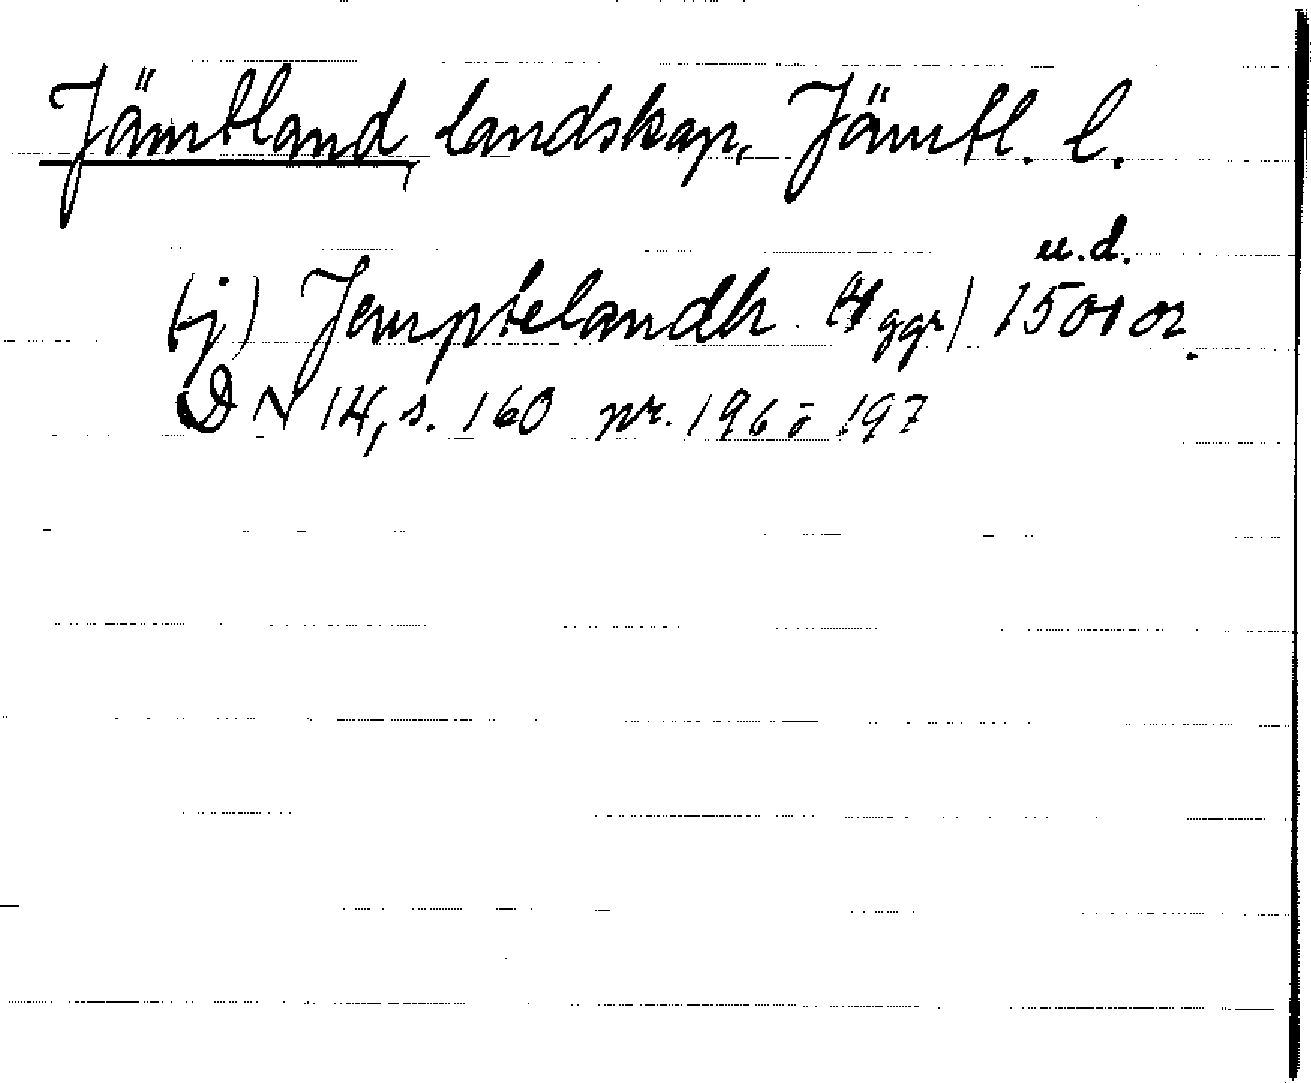 Jämtland, landskap, Jämtl. l.
u.d.
(j) Jemptelandh (4 ggr) 1501 or.
DN 14, s. 160 nr. 196 ō 197